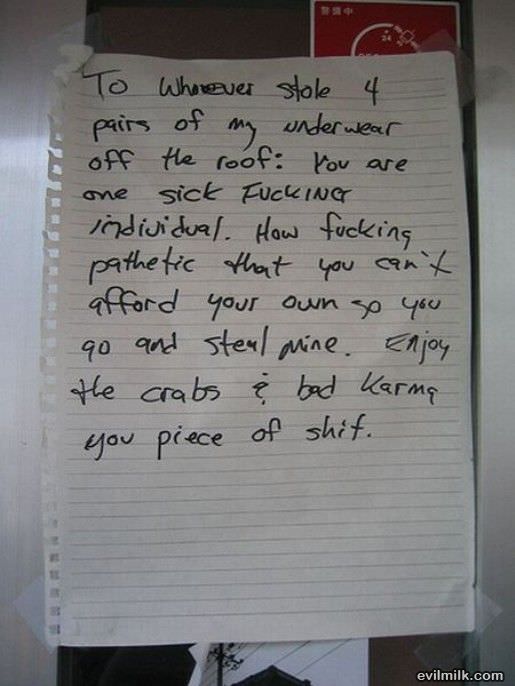 警備中
24
To Whoever stole 4
pairs of my underwear
off the roof: You are
one sick FUCKING
individual. How fucking
pathetic that you can't
afford your own so you
go and steal mine. Enjoy
the crabs & bad Karma
you piece of shit.
evilmilk.com